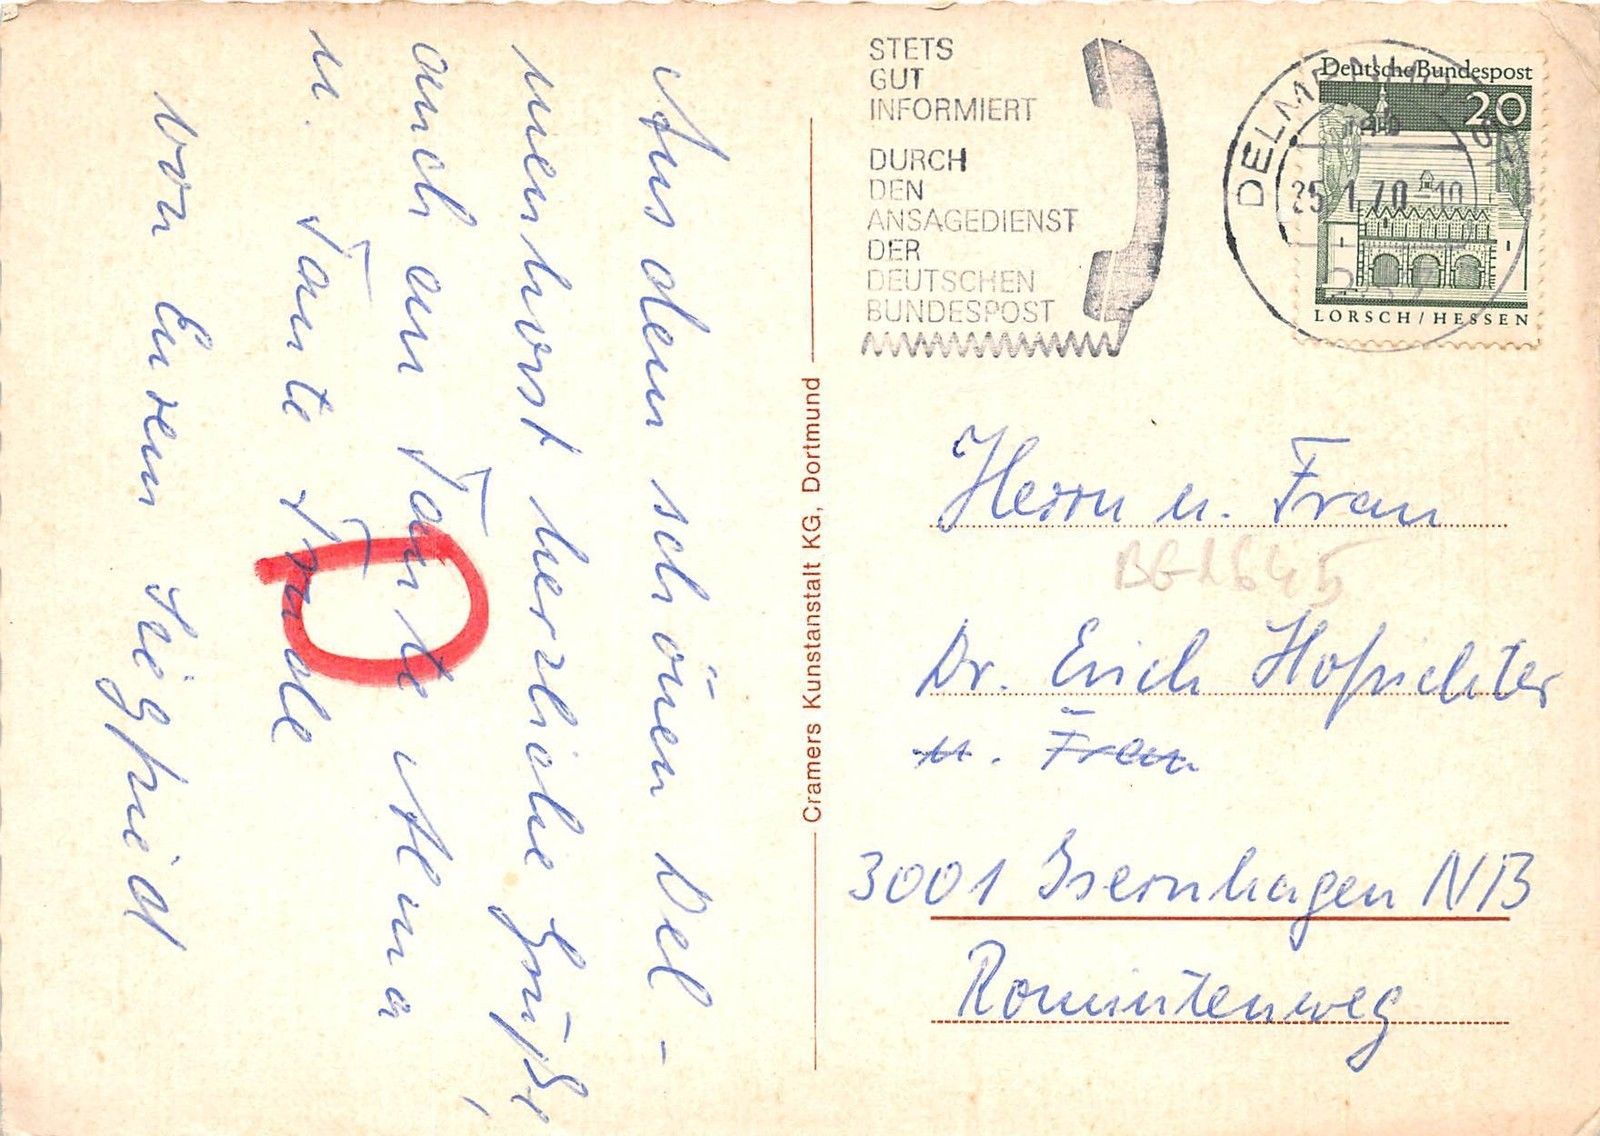 Aus dem schönen Del-
menhorst herzliche Grüße,
auch an Tante Alma
u. Tante Trude
von Eurem Siegfried
Cramers Kunstanstalt KG, Dortmund
STETS
GUT
INFORMIERT
DURCH
DEN
ANSAGEDIENST
DER
DEUTSCHEN
BUNDESPOST
DELMENHORST
25.1.70-10
Deutsche Bundespost
20
LORSCH/HESSEN
Herrn u. Frau
Dr. Erich Hofrichter
u. Frau
3001 Isernhagen NB
Romintenweg